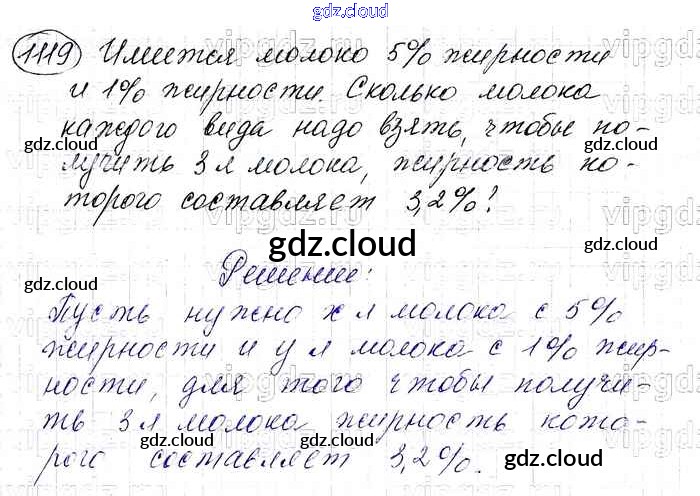 gdz.cloud
1119 Имеется молоко 5% жирности
и 1% жирности. Сколько молока
каждого вида надо взять, чтобы по-
лучить 3 л молока, жирность ко-
торого составляет 3,2%?
gdz.cloud
Решение:
Пусть нужно x л молока с 5%
жирности и y л молока с 1% жир-
ности, для того чтобы получи-
ть 3 л молока жирность кото-
рого составляет 3,2%.
gdz.cloud